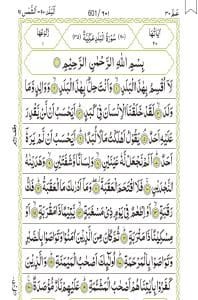 عم ٣٠
601 / ٦٠١
البلد ٩٠ - الشمس ٩١
سُورَةُ الْبَلَدِ مَكِّيَّةٌ
بِسْمِ اللهِ الرَّحْمٰنِ الرَّحِيْمِ
لَآ اُقْسِمُ بِهٰذَا الْبَلَدِ وَاَنْتَ حِلٌّۢ بِهٰذَا الْبَلَدِ وَوَالِدٍ وَّمَا
وَلَدَ لَقَدْ خَلَقْنَا الْاِنْسَانَ فِيْ كَبَدٍ اَيَحْسَبُ اَنْ لَّنْ يَّقْدِرَ
عَلَيْهِ اَحَدٌ يَقُوْلُ اَهْلَكْتُ مَالًا لُّبَدًا اَيَحْسَبُ اَنْ لَّمْ يَرَهٗٓ
اَحَدٌ اَلَمْ نَجْعَلْ لَّهٗ عَيْنَيْنِ وَلِسَانًا وَّشَفَتَيْنِ وَهَدَيْنٰهُ
النَّجْدَيْنِ فَلَا اقْتَحَمَ الْعَقَبَةَ وَمَآ اَدْرٰىكَ مَا الْعَقَبَةُ فَكُّ
رَقَبَةٍ اَوْ اِطْعٰمٌ فِيْ يَوْمٍ ذِيْ مَسْغَبَةٍ يَّتِيْمًا ذَا مَقْرَبَةٍ اَوْ
مِسْكِيْنًا ذَا مَتْرَبَةٍ ثُمَّ كَانَ مِنَ الَّذِيْنَ اٰمَنُوْا وَتَوَاصَوْا بِالصَّبْرِ
وَتَوَاصَوْا بِالْمَرْحَمَةِ اُولٰٓئِكَ اَصْحٰبُ الْمَيْمَنَةِ وَالَّذِيْنَ
كَفَرُوْا بِاٰيٰتِنَا هُمْ اَصْحٰبُ الْمَشْئَمَةِ عَلَيْهِمْ نَارٌ مُّؤْصَدَةٌ